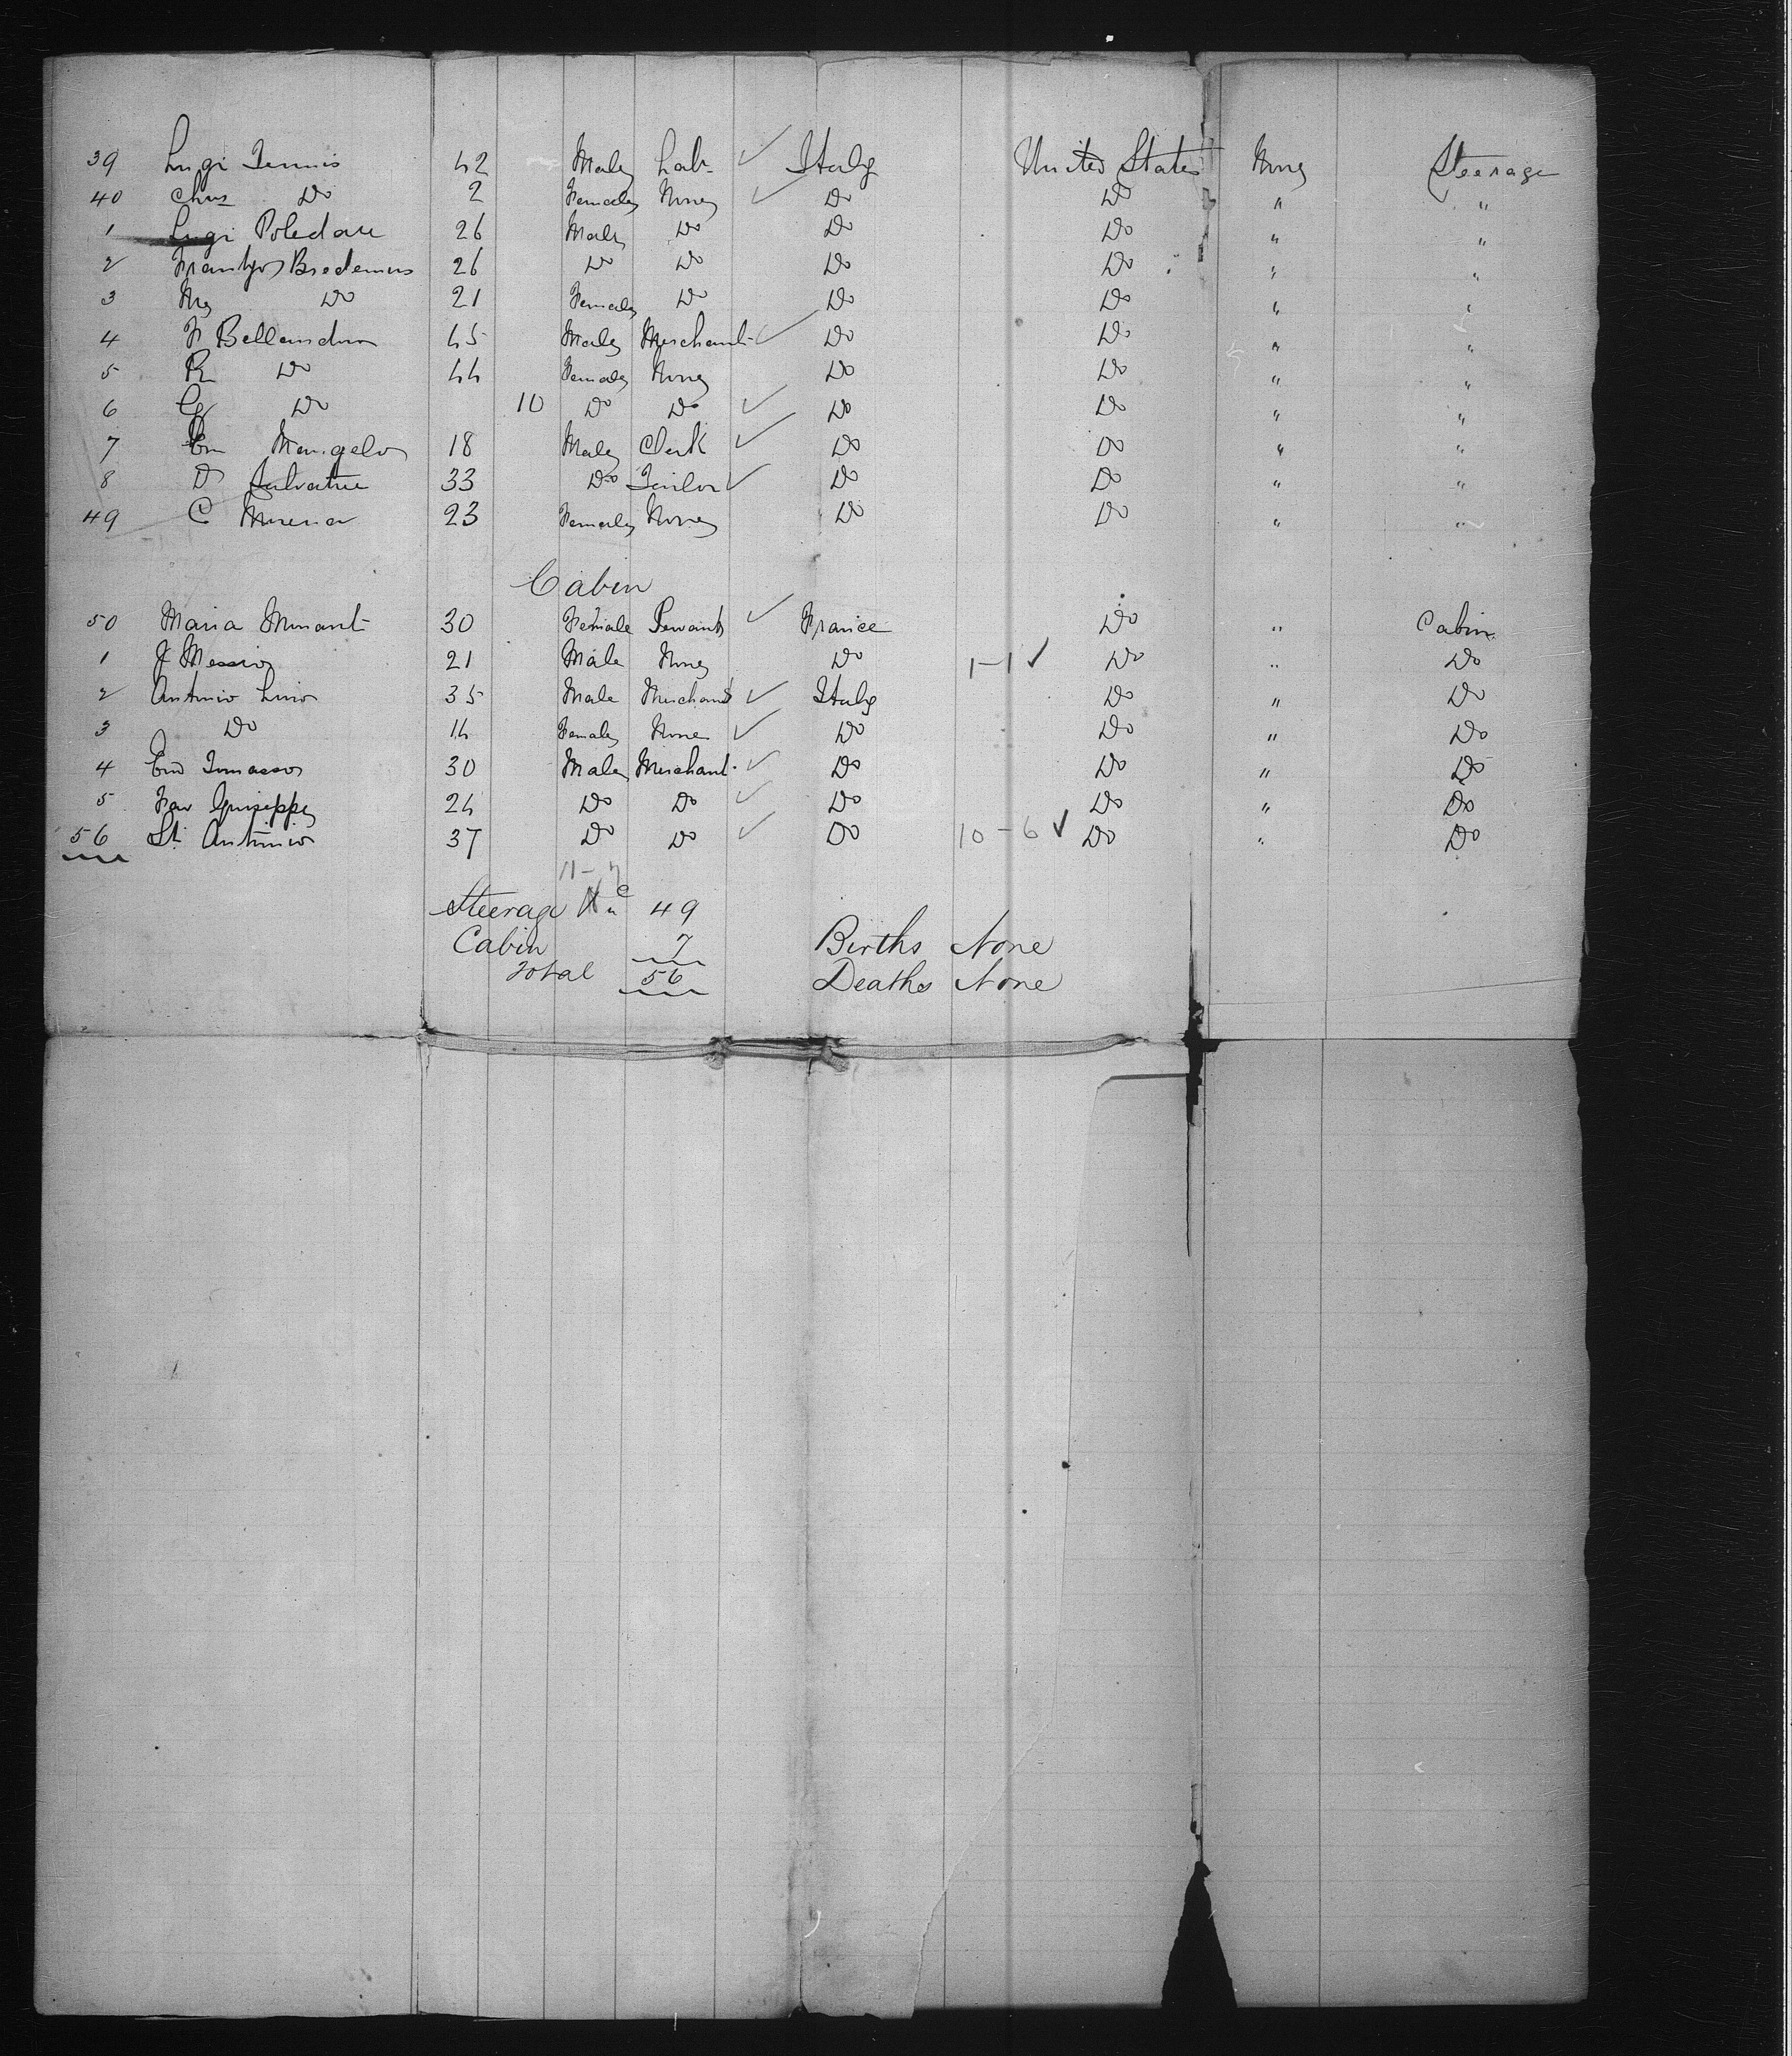 39 Luigi Tennis 42 Male Labr ✓ Italy United States None Steerage
40 Chas Do 2 Female None ✓ Do Do " "
1 Luigi Poledare 26 Male Do Do Do " "
2 Bredemus 26 Do Do Do Do " "
3 Do 21 Female Do Do Do " "
4 F 45 Male Merchant ✓ Do Do " "
5 Do 44 Female None Do Do " "
6 Do 10 Do Do ✓ Do Do " "
7 Em Mangelo 18 Male Clerk ✓ Do Do " "
8 D Salvatue 33 Do Tailor ✓ Do Do " "
49 C 23 Female None Do Do " "
Cabin
50 Maria Minant 30 Female Servant ✓ France Do " Cabin
1 J 21 Male None Do 1-1 ✓ Do " Do
2 Antonio Livio 35 Male Merchant ✓ Italy Do " Do
3 Do 14 Female None ✓ Do Do " Do
4 Tomasso 30 Male Merchant ✓ Do Do " Do
5 Guiseppe 24 Do Do ✓ Do Do " Do
56 St. Antonio 37 Do Do ✓ Do 10-6 ✓ Do " Do
11-7
Steerage 49
Cabin 7 Births None
Total 56 Deaths None